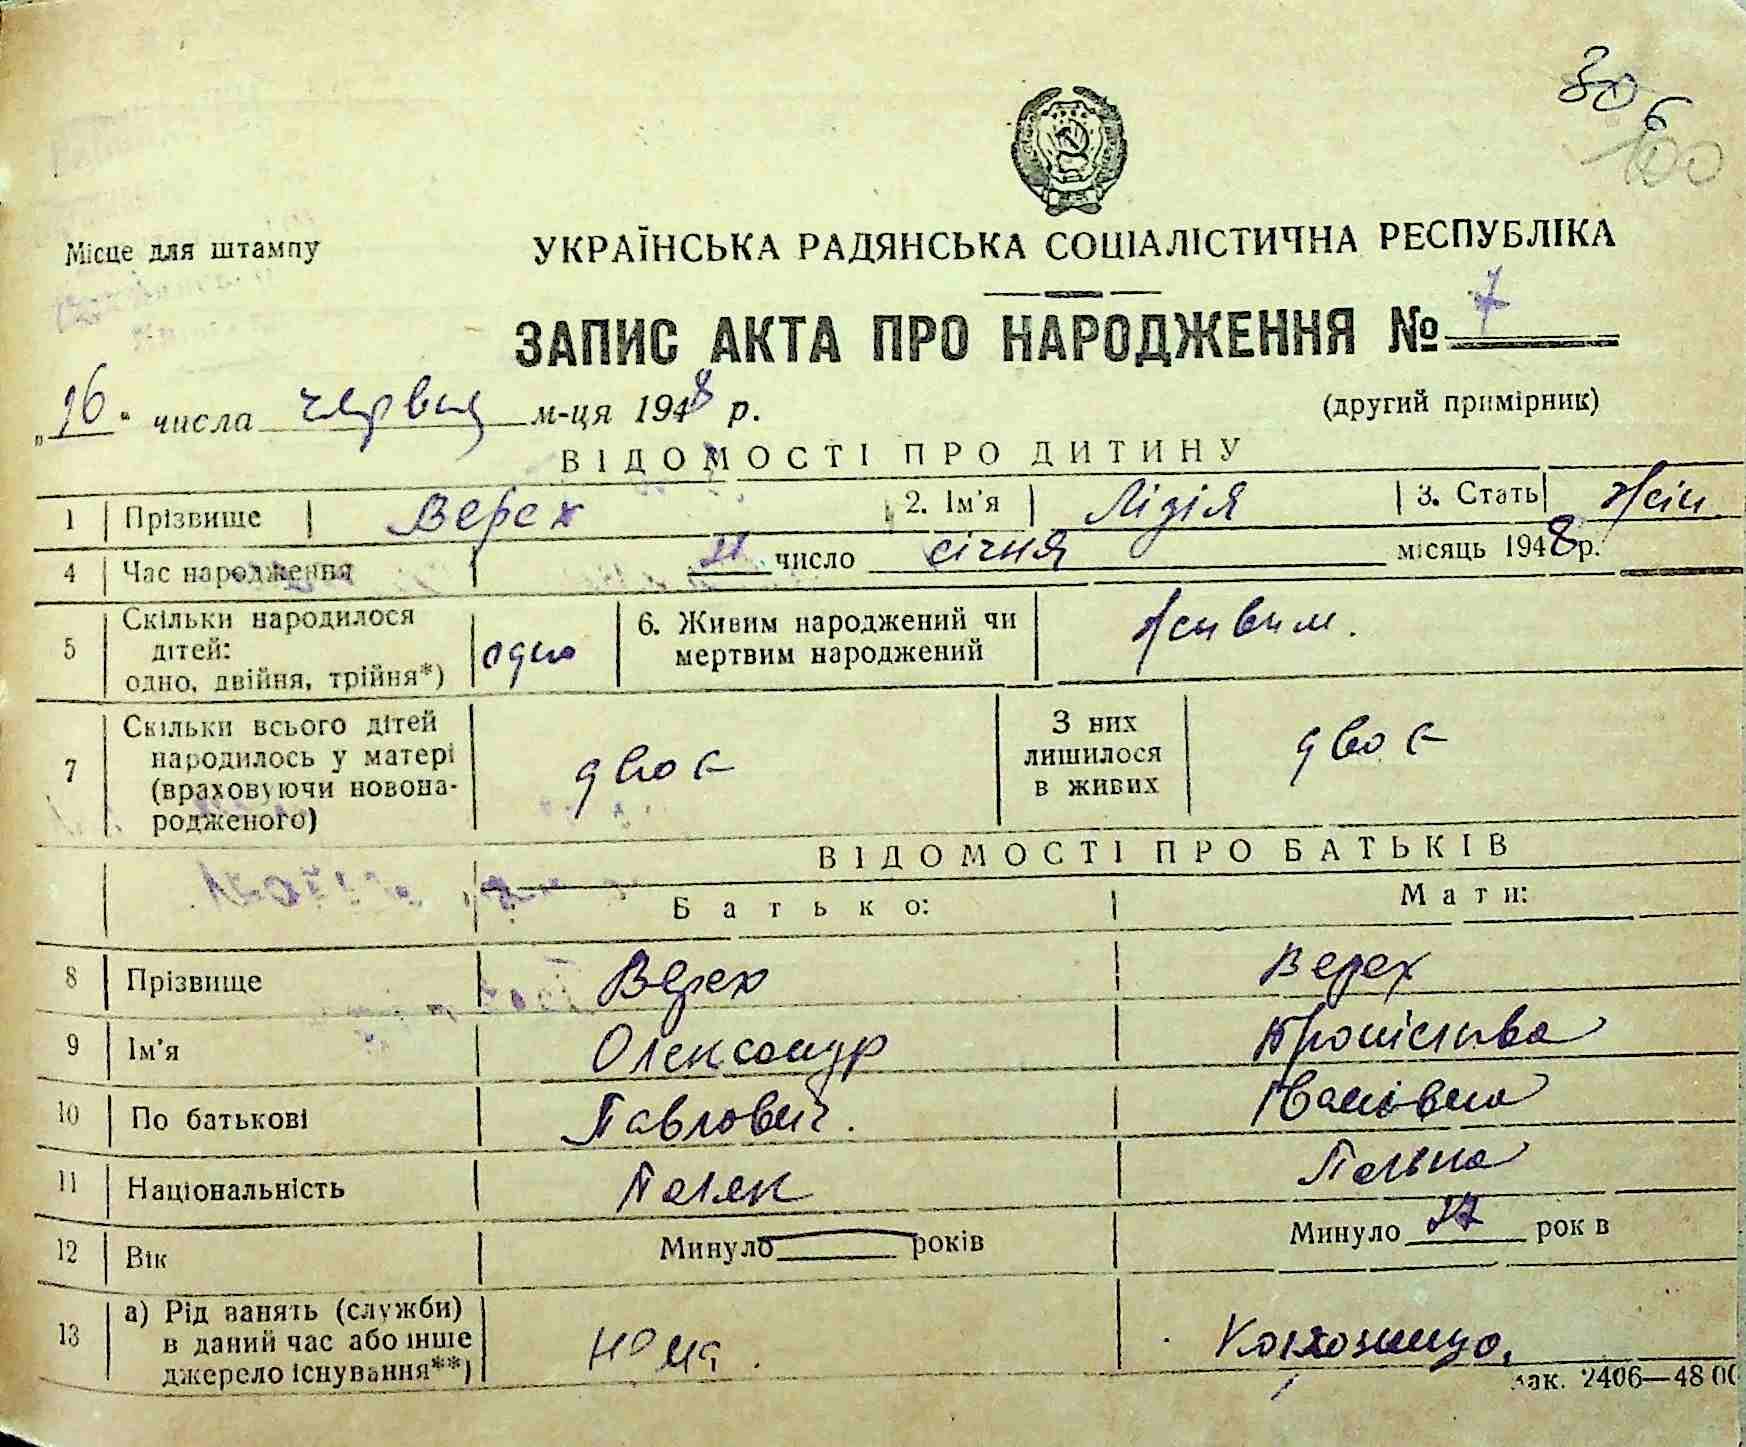 30
6
100
Місце для штампу
УКРАЇНСЬКА РАДЯНСЬКА СОЦІАЛІСТИЧНА РЕСПУБЛІКА
ЗАПИС АКТА ПРО НАРОДЖЕННЯ № 7
„16" числа червня м-ця 1948 р.
(другий примірник)
ВІДОМОСТІ ПРО ДИТИНУ
1 Прізвище Верех 2. Ім'я Лідія 3. Стать жін.
4 Час народження 11 число січня місяць 1948 р.
5 Скільки народилося дітей: одно, двійня, трійня*) одно 6. Живим народжений чи мертвим народжений живим.
7 Скільки всього дітей народилось у матері (враховуючи новонародженого) двоє З них лишилося в живих двоє
ВІДОМОСТІ ПРО БАТЬКІВ
Батько: Мати:
8 Прізвище Верех Верех
9 Ім'я Олександр Броніслава
10 По батькові Павлович. Іванівна
11 Національність Поляк Полька
12 Вік Минуло років Минуло рок в
13 а) Рід занять (служби) в даний час або інше джерело існування**)
зак. 2406—48 00